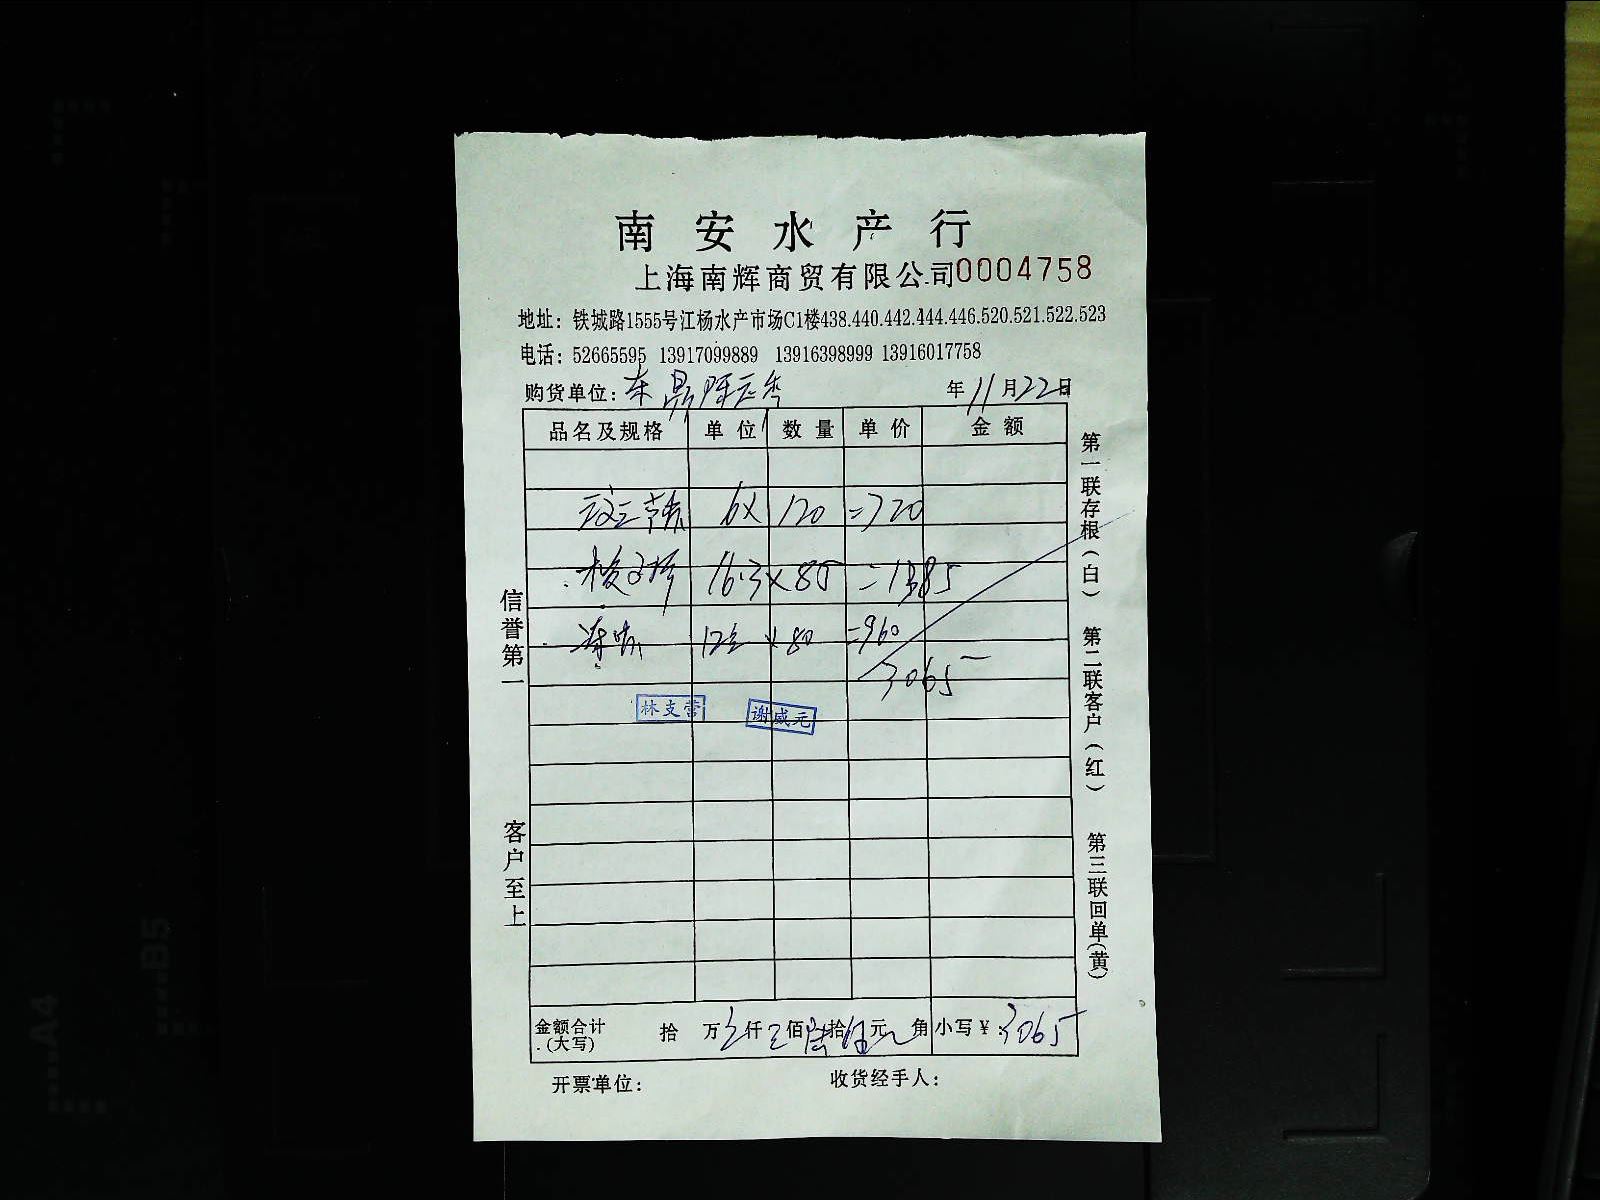 南安水产行
上海南辉商贸有限公司0004758
地址：铁城路1555号江杨水产市场C1楼438.440.442.444.446.520.521.522.523
电话：52665595 13917099889 13916398999 13916017758
购货单位： 年11月22日
品名及规格 单位 数量 单价 金额
6X 120 =720
16.3 X 85 =1385
12 X 80 =960
3065
林支营 谢威元
金额合计(大写) 拾 万 仟 佰 拾 元 角 小写￥：3065
开票单位： 收货经手人：
信誉第一
客户至上
第一联存根(白)
第二联客户(红)
第三联回单(黄)